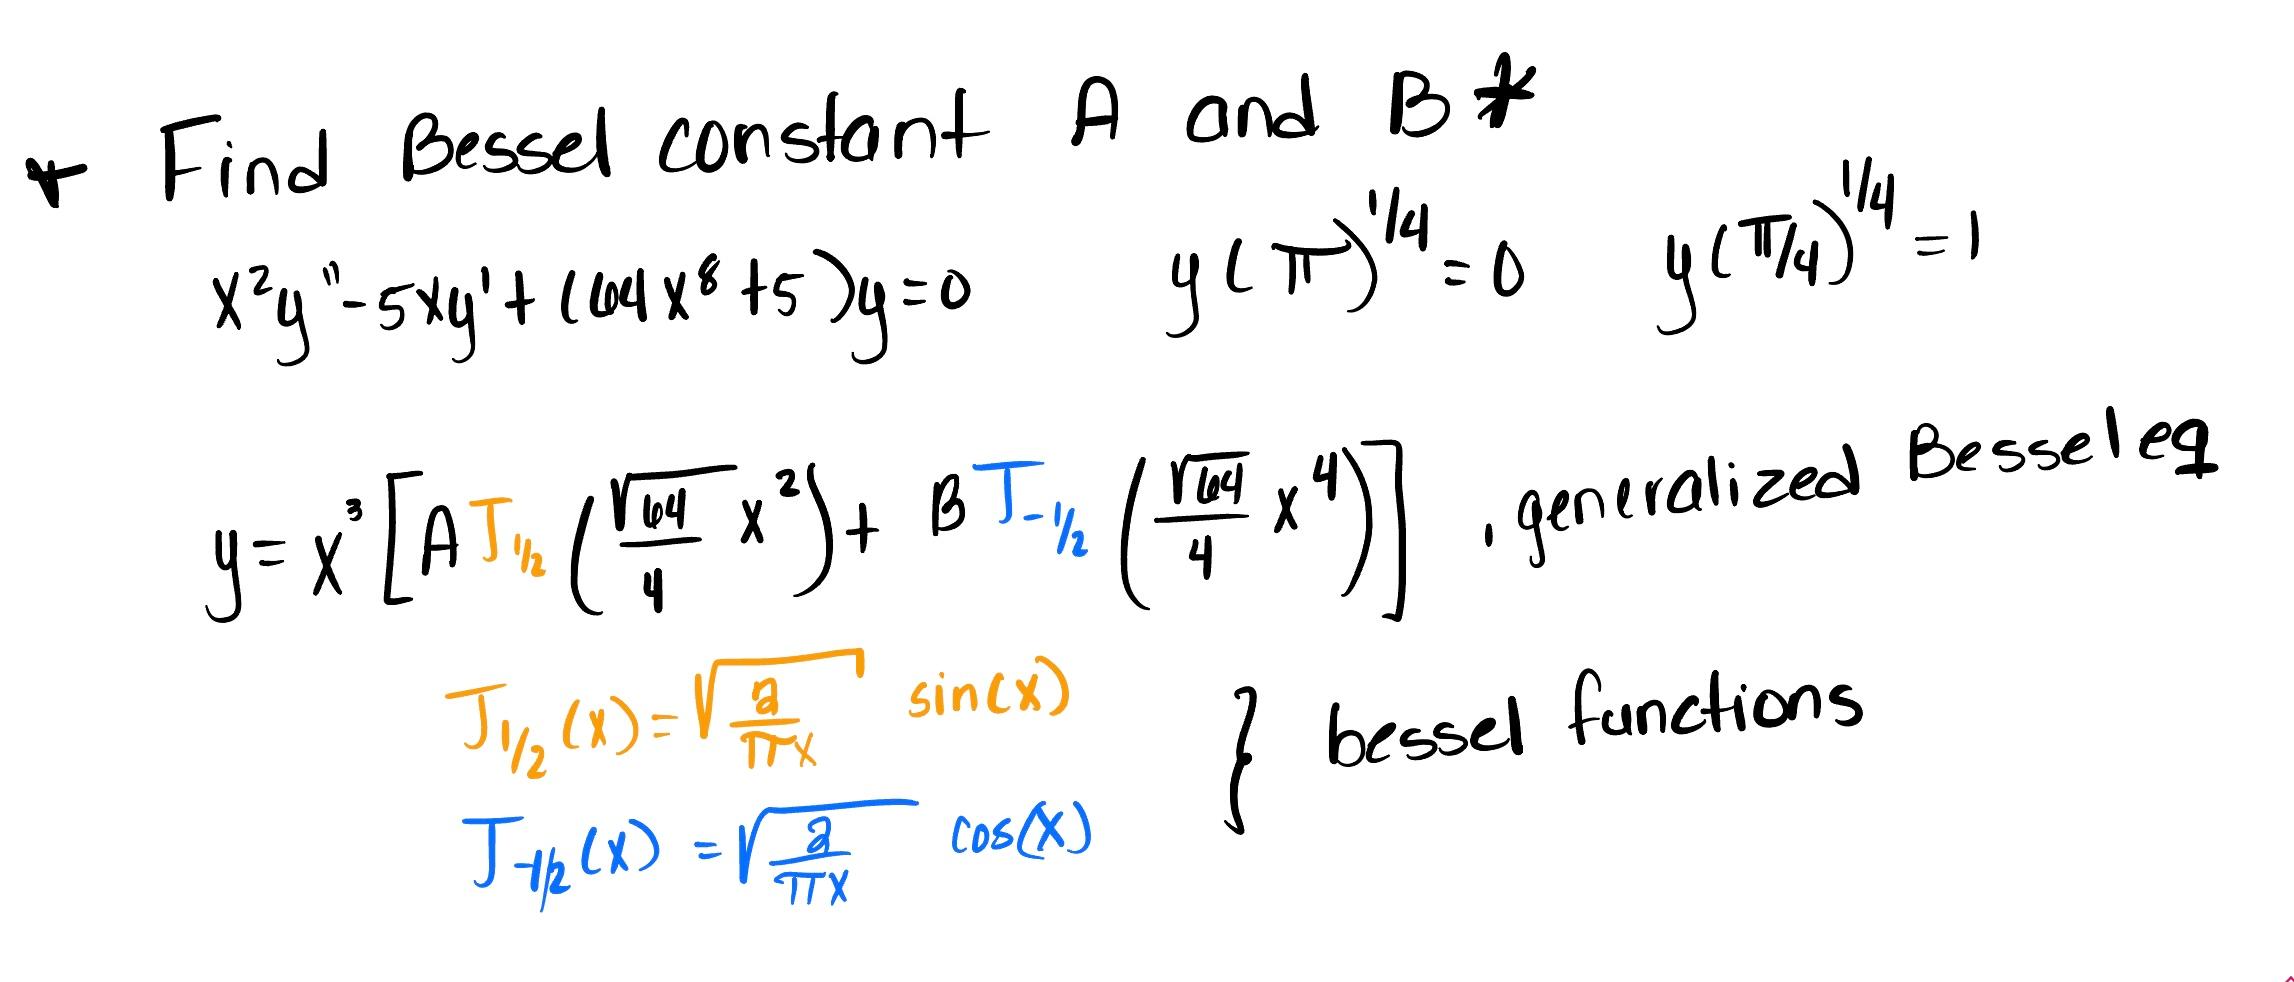 * Find Bessel constant A and B *
x²y"-5xy'+(64x⁸+5)y=0 y(π)^1/4=0 y(π/4)^1/4=1
y=x³[AJ_1/2(√64/4 x²)+BJ_-1/2(√64/4 x⁴)], generalized Bessel eq
J_1/2(x)=√(2/πx) sin(x)
} bessel functions
J_-1/2(x)=√(2/πx) cos(x)